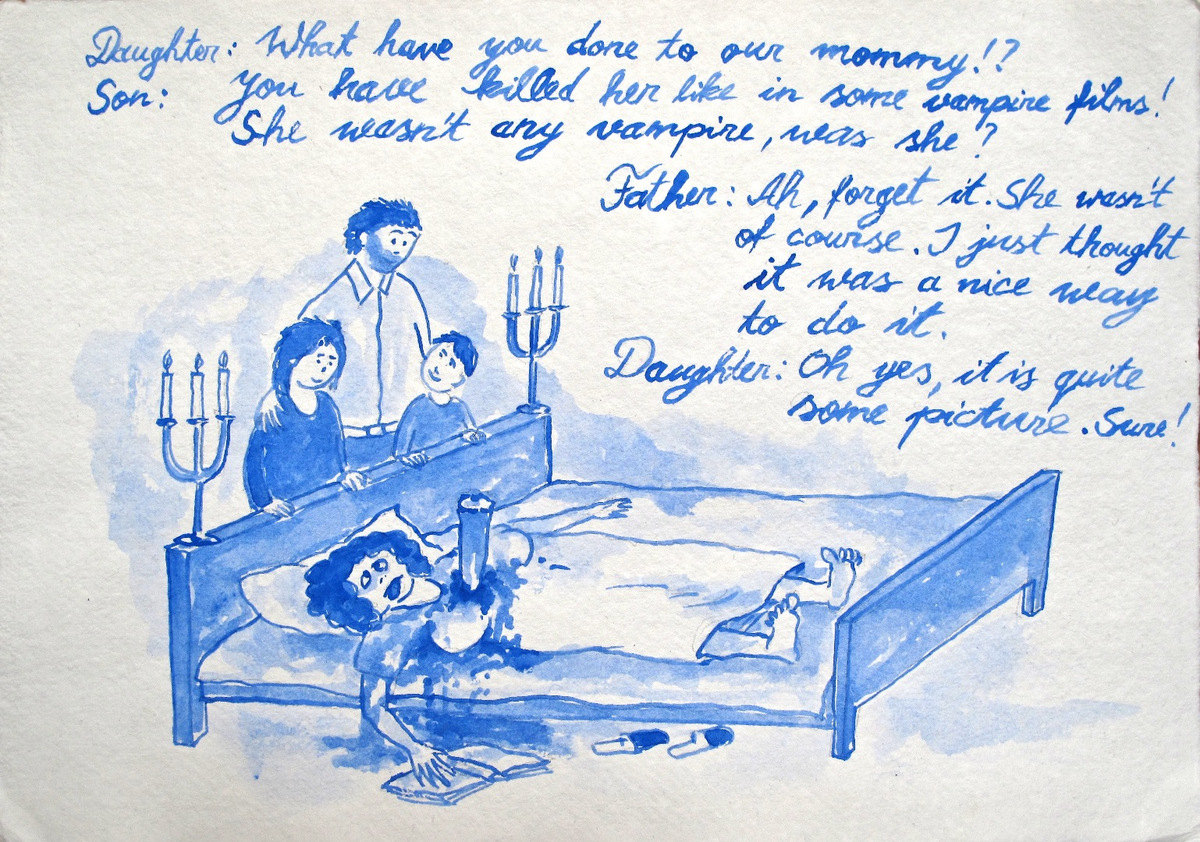 Daughter: What have you done to our mommy!?
Son: You have killed her like in some vampire films!
She wasn't any vampire, was she?
Father: Ah, forget it. She wasn't
of course. I just thought
it was a nice way
to do it.
Daughter: Oh yes, it is quite
some picture. Sure!